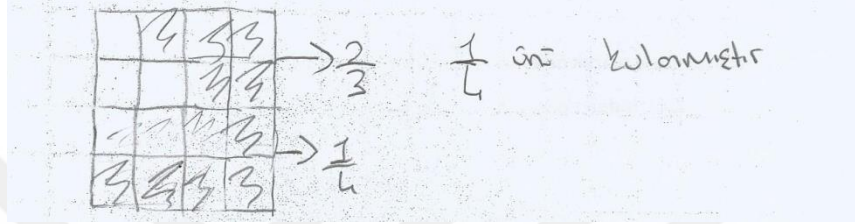 → 2/3 1/4 ünü kulanmıştır
→ 1/4